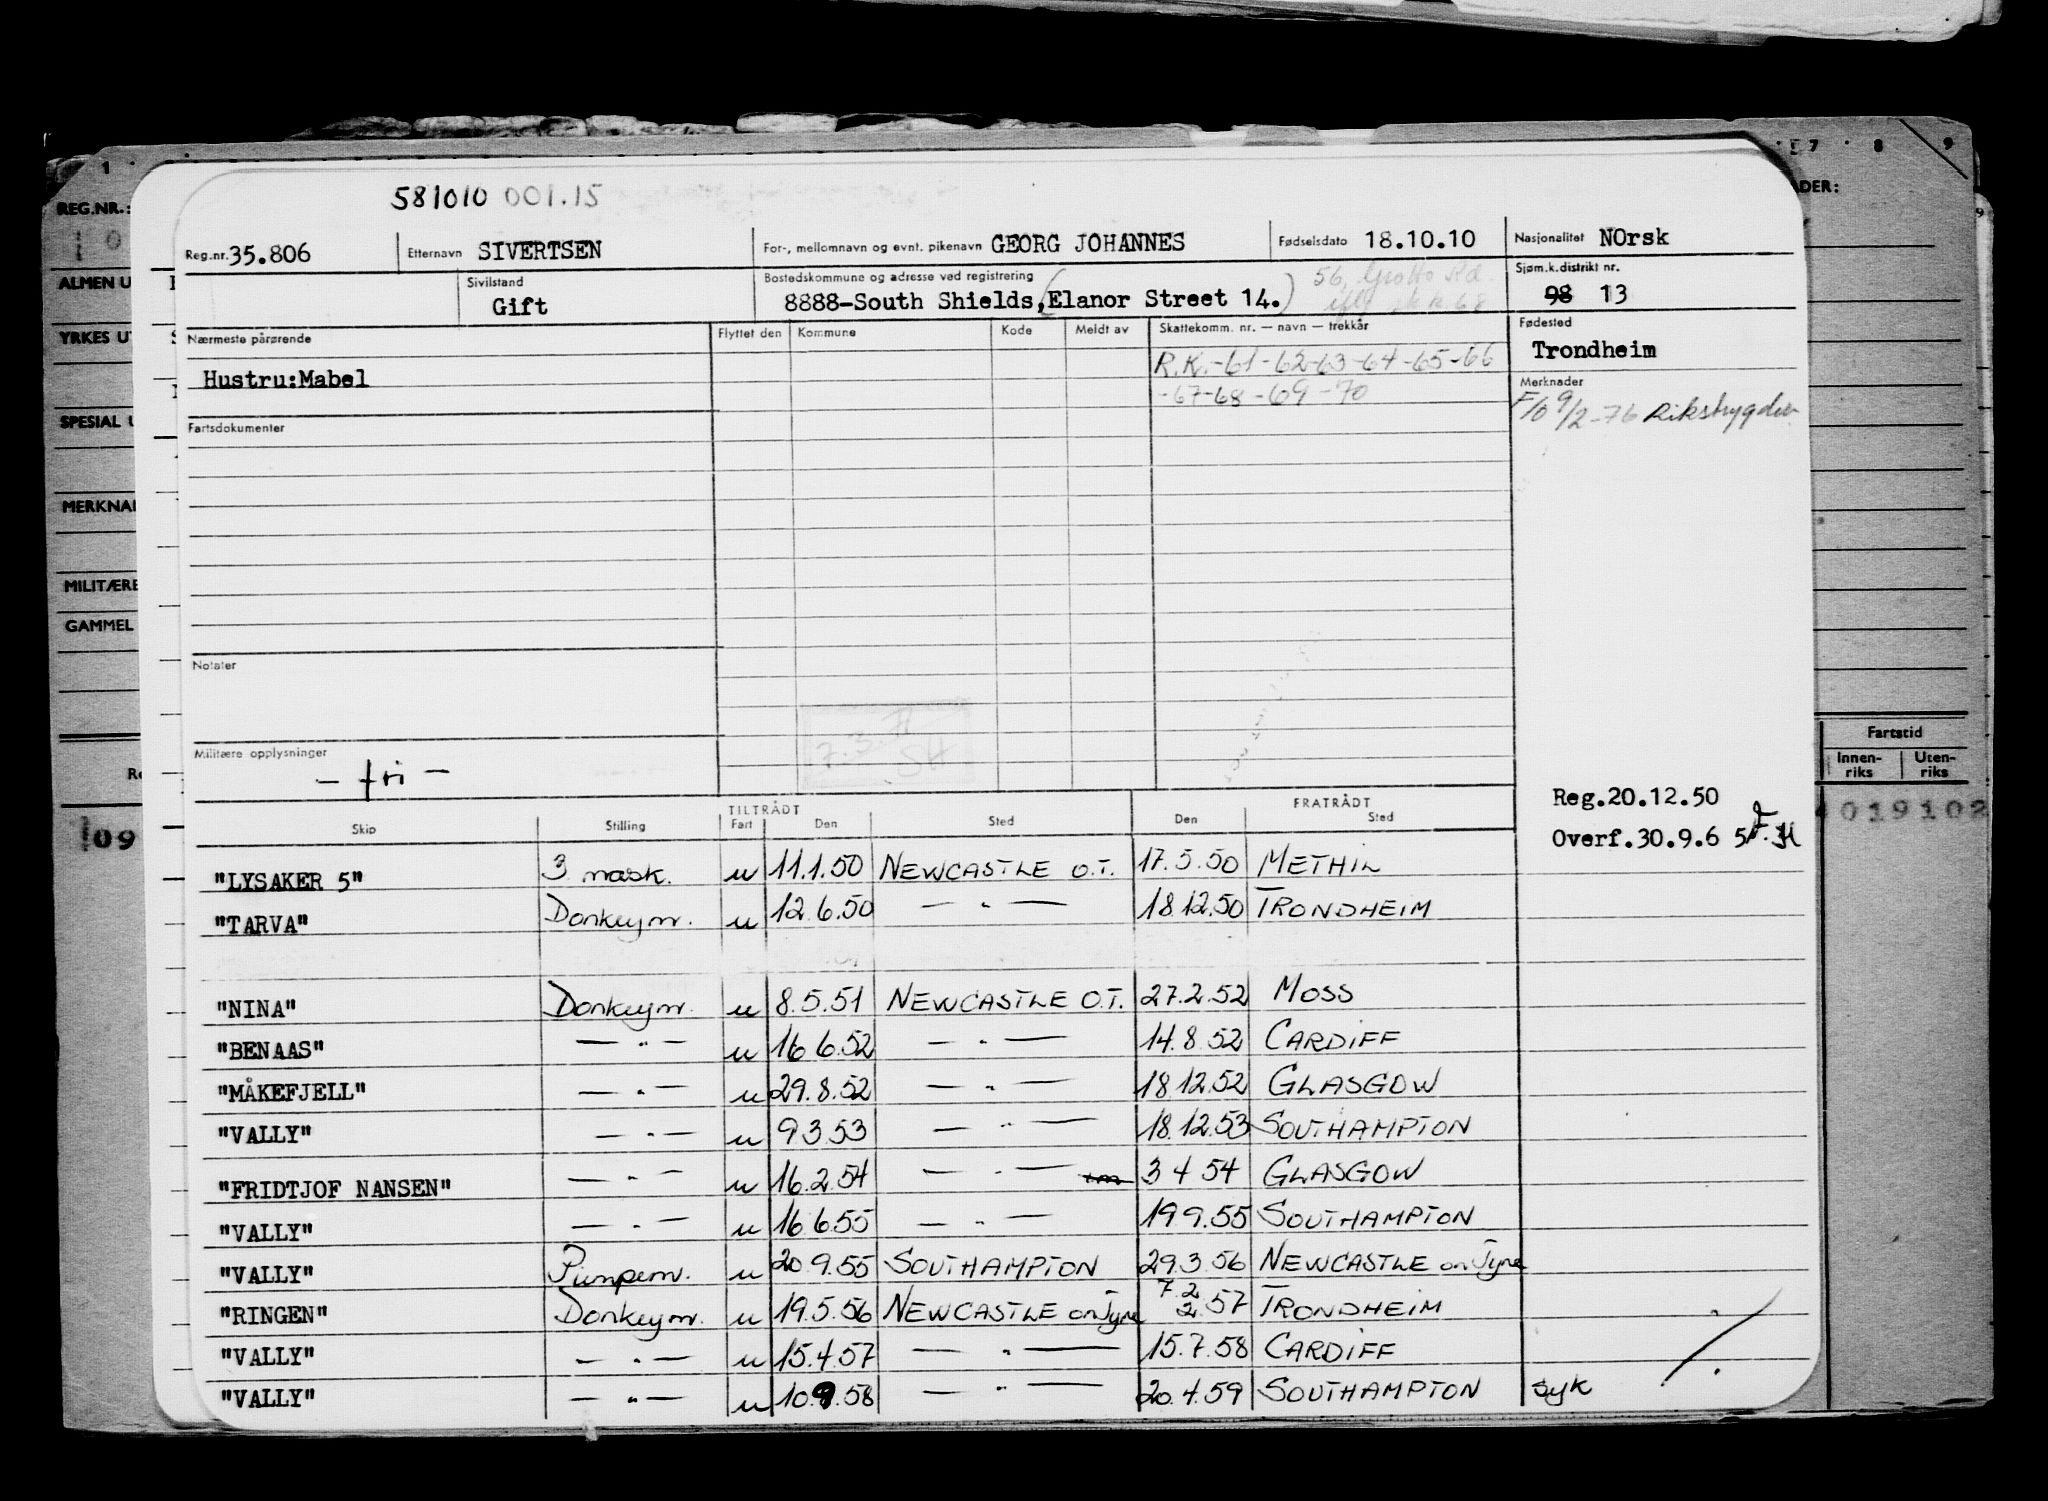 1 7 8 9
581010 001.15
REG.NR.: ADER:
Reg.nr. 35.806 Etternavn SIVERTSEN For-, mellomnavn og evnt. pikenavn GEORG JOHANNES Fødselsdato 18.10.10 Nasjonalitet NOrsk
ALMEN U Sivilstand Bostedskommune og adresse ved registrering 56, Grotto Rd. Sjøm.k.distrikt nr.
Gift 8888-South Shields,(Elanor Street 14.) 98 13
YRKES UT Nærmeste pårørende Flyttet den Kommune Kode Meldt av Skattekomm. nr. — navn — trekkår Fødested
Trondheim
Hustru:Mabel R.K.-61-62-63-64-65-66
-67-68-69-70
Merknader
F/o 9/2-76 Riksbygden
SPESIAL U Fartsdokumenter
MERKNAD
MILITÆRE
GAMMEL
Notater
7.3.
SH
Militære opplysninger
— fri —
Fartstid
Innen-riks Uten-riks
Reg.20.12.50
019102
Overf.30.9.6 5
09
TILTRÅDT FRATRÅDT
Skip Stilling Fart Den Sted Den Sted
"LYSAKER 5" 3 mask. u 11.1.50 NEWCASTLE O.T. 17.5.50 METHIL
"TARVA" Donkeym. u 12.6.50 — " — 18.12.50 TRONDHEIM
"NINA" Donkeym. u 8.5.51 NEWCASTLE O.T. 27.2.52 MOSS
"BENAAS" — " — u 16 6.52 — " — 14.8.52 CARDIFF
"MÅKEFJELL" — " — u 29.8.52 — " — 18 12.52 GLASGOW
"VALLY" — " — u 9 3.53 — " — 18.12.53 SOUTHAMPTON
"FRIDTJOF NANSEN" — " — u 16.2.54 — " — 3 4 54 GLASGOW
"VALLY" — " — u 16 6.55 — " — 19 9.55 SOUTHAMPTON
"VALLY" Pumpem. u 20.9.55 SOUTHAMPTON 29.3.56 NEWCASTLE on Tyne
"RINGEN" Donkeym. u 19.5.56 NEWCASTLE on Tyne 7.2 2.57 TRONDHEIM
"VALLY" — " — u 15.4.57 — " — 15.7.58 CARDIFF
"VALLY" — " — u 10.9.58 — " — 20.4.59 SOUTHAMPTON syk